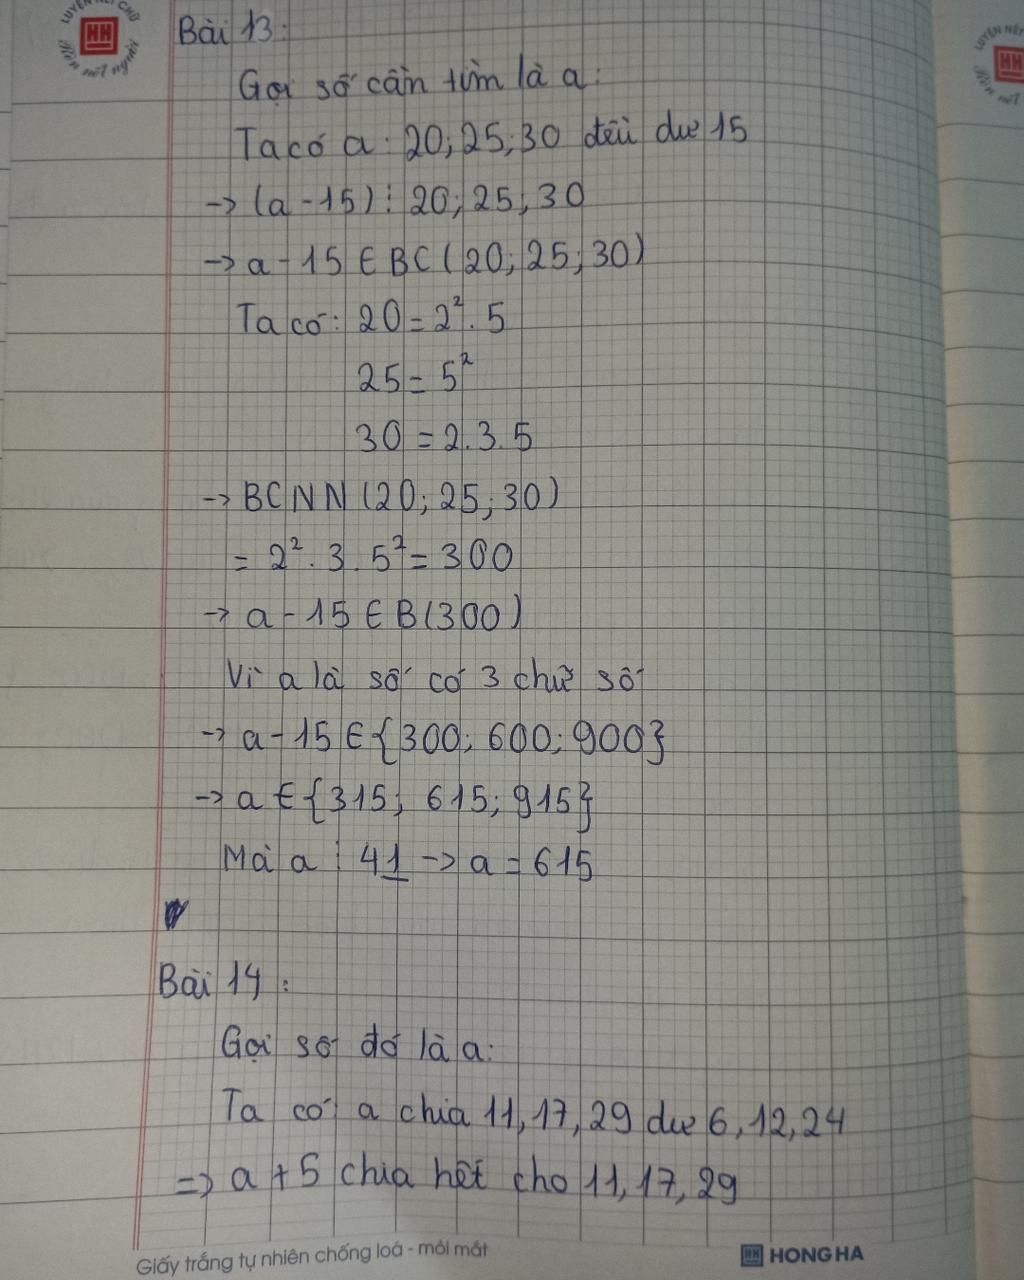 LUYỆN NÉT CHỮ
HH
Rèn nết người
LUYỆN NÉT
HH
Rèn nết
Bài 13:
Gọi số cần tìm là a:
Ta có a : 20; 25; 30 đều dư 15
→ (a - 15) ⋮ 20; 25; 30
→ a - 15 ∈ BC (20; 25; 30)
Ta có: 20 = 2². 5
25 = 5²
30 = 2.3.5
→ BCNN (20; 25; 30)
= 2². 3. 5² = 300
→ a - 15 ∈ B(300)
Vì a là số có 3 chữ số
→ a - 15 ∈ {300; 600; 900}
→ a ∈ {315; 615; 915}
Mà a ⋮ 41 → a = 615
Bài 14:
Gọi số đó là a:
Ta có a chia 11, 17, 29 dư 6, 12, 24
=> a + 5 chia hết cho 11, 17, 29
Giấy trắng tự nhiên chống loá - mỏi mắt
HH HONG HA